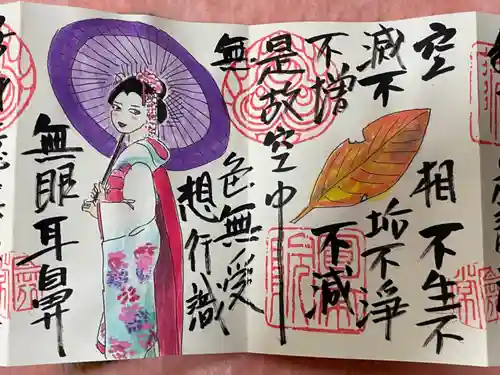 空相不生不
滅不垢不淨
不増不減
是故空中
無色無受
想行識
無眼耳鼻